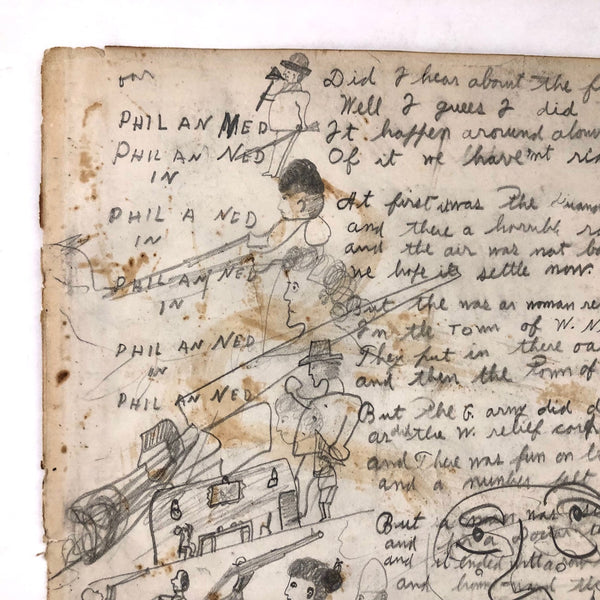 our
PHIL AN MED
PHIL AN NED
IN
PHIL A NED
IN
PHIL AN NED
IN
PHIL AN NED
IN
PHIL AN NED
Did I hear about the f
Well I guees I did
It happen around abou
Of it we have'nt ri
At first was the
and there a horrible
and the air was not
we hope its settle now.
But the was an woman re
In the Town of W. N
They put in there
and then the Town of
But the G. army did d
and the W. relief corp
and There was fun on
and a number felt
But a man was
and
and it ended
and home and the